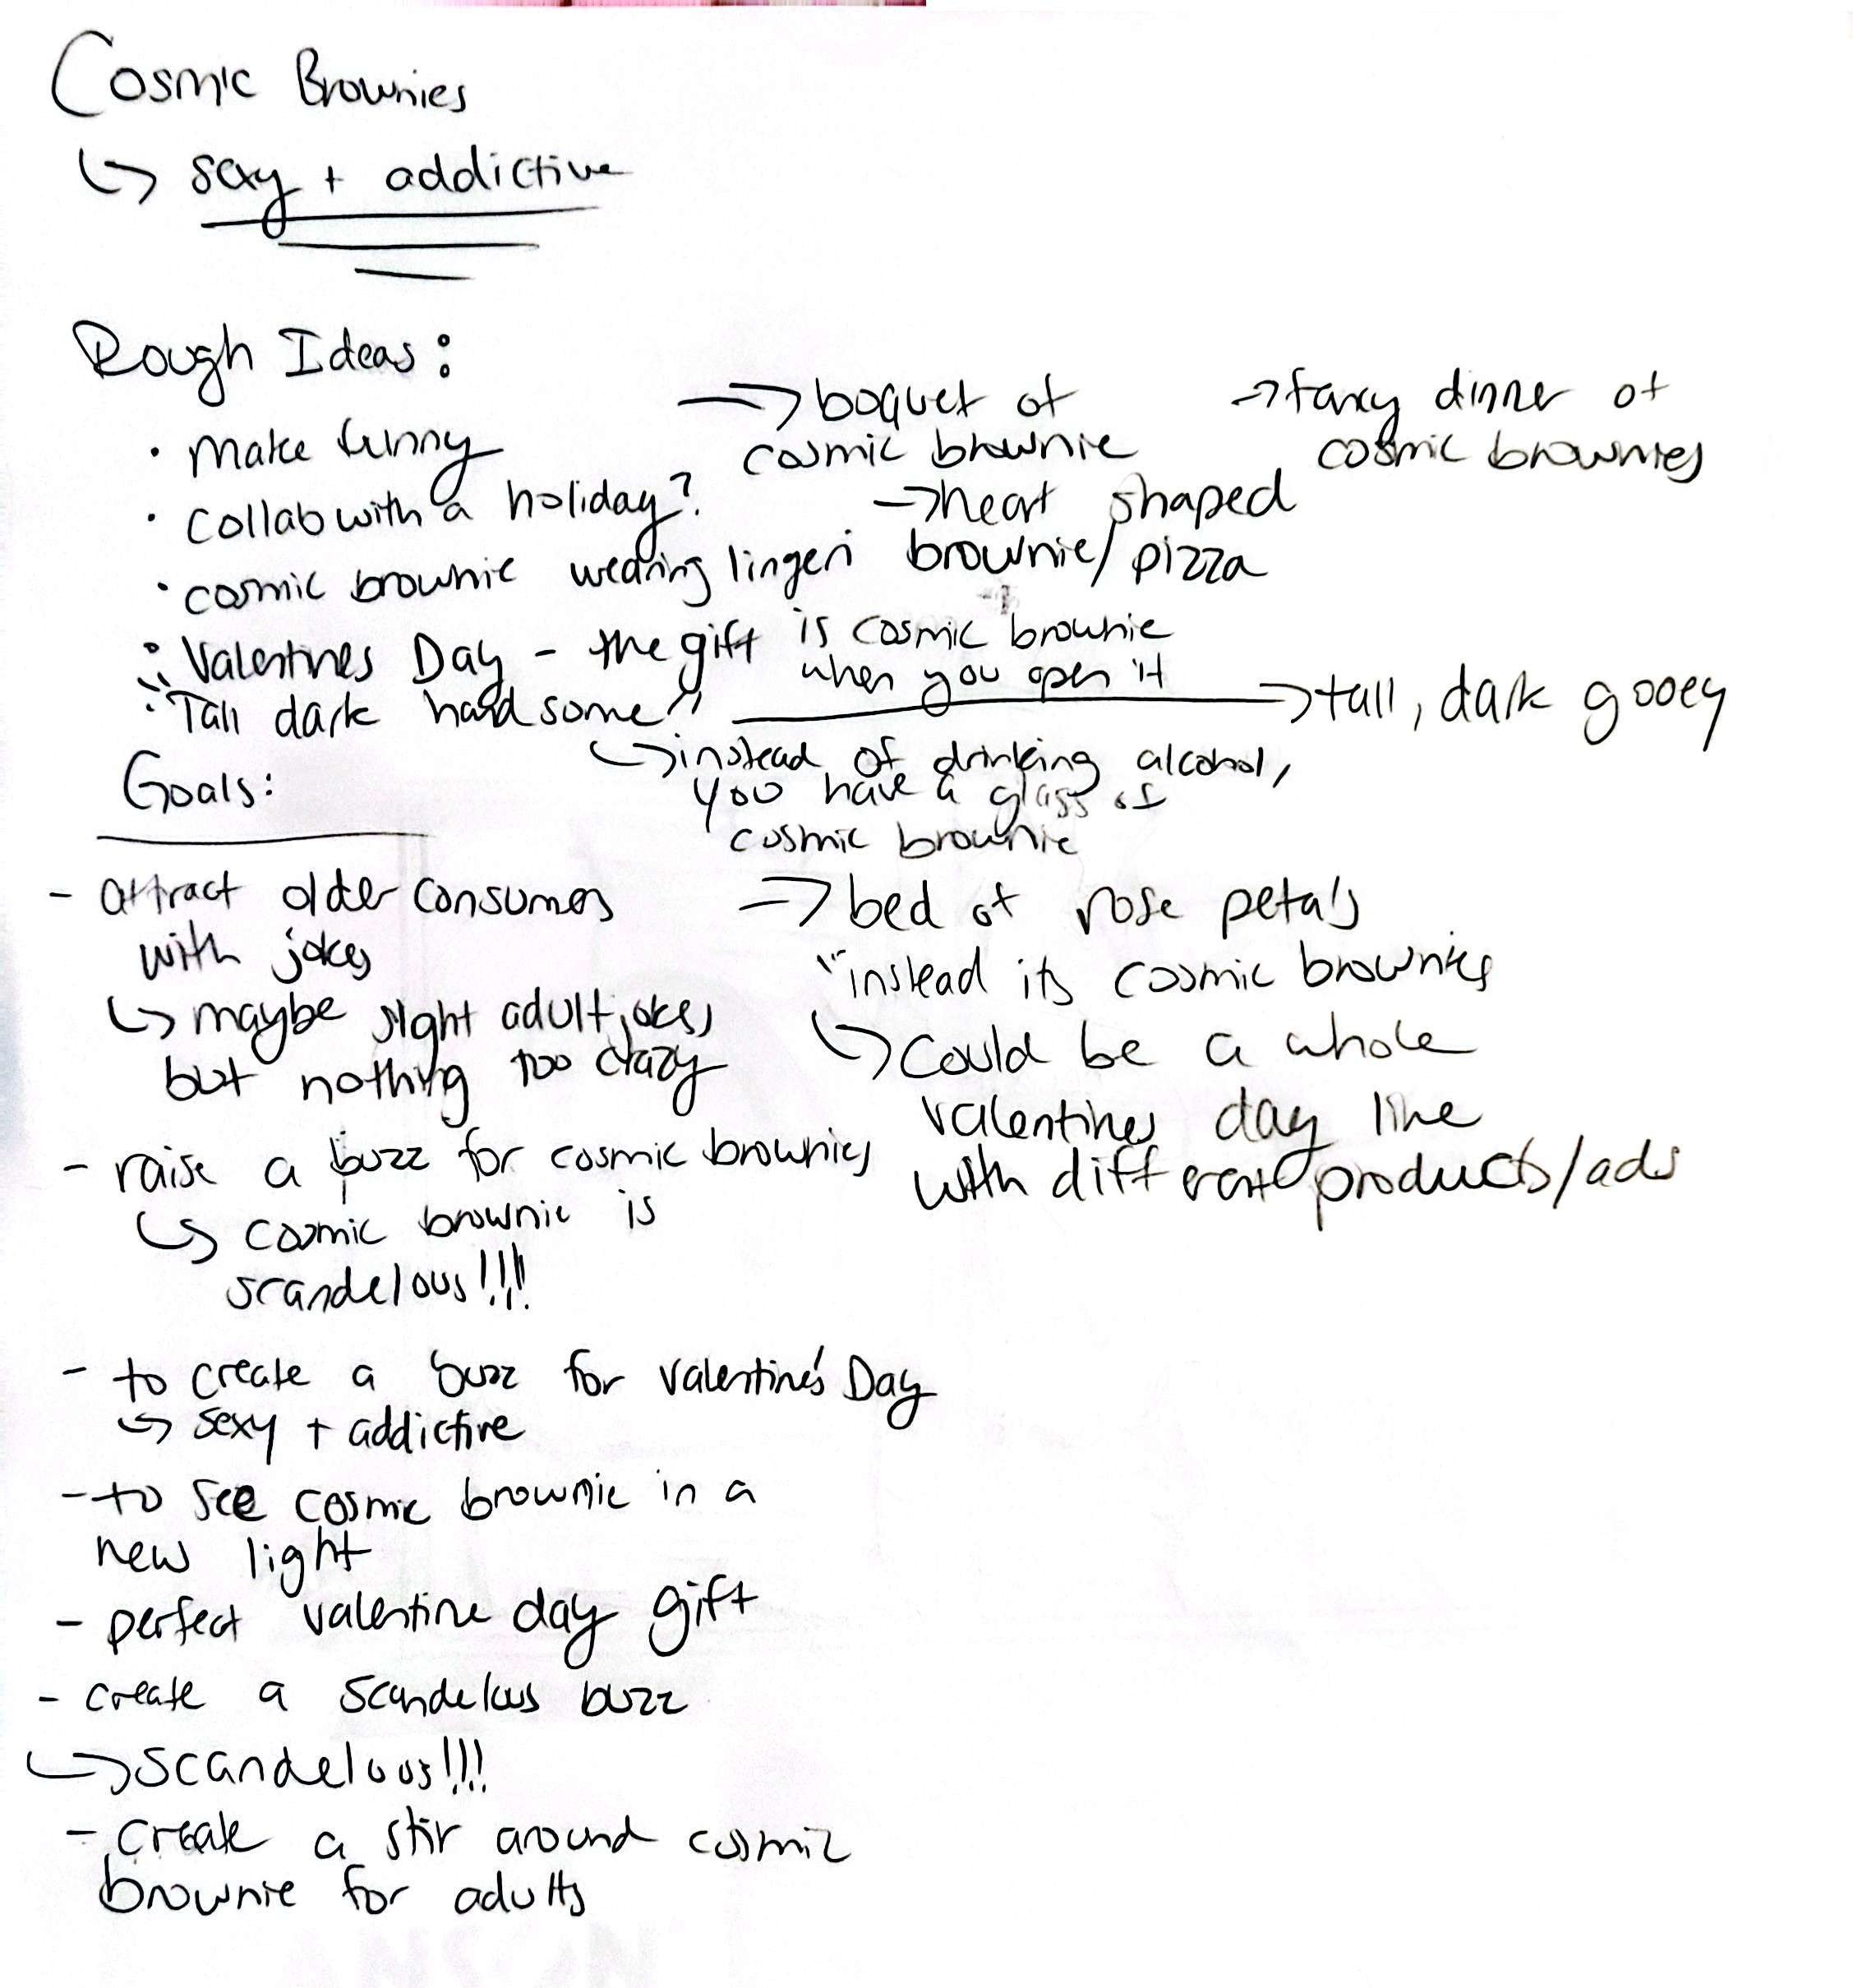 Cosmic Brownies
↳ sexy + addictive
Rough Ideas:
• Make funny
→ boquet of
cosmic brownie
→ fancy dinner of
cosmic brownies
• collab with a holiday?
→ heart shaped
brownie/pizza
• cosmic brownie wearing lingeri
• Valentines Day - the gift is cosmic brownie
when you open it
• "Tall dark handsome" → tall, dark gooey
↳ instead of drinking alcohol,
you have a glass of
cosmic brownie
Goals:
- attract older consumers
with jokes
↳ maybe slight adult jokes
but nothing too crazy
- raise a buzz for cosmic brownies
↳ cosmic brownie is
scandelous!!!!
- to create a buzz for Valentine's Day
↳ sexy + addictive
- to see cosmic brownie in a
new light
- perfect valentine day gift
- create a scandelous buzz
↳ scandelous!!!
- create a stir around cosmic
brownie for adults
→ bed of rose petals
"instead its cosmic brownies
↳ Could be a whole
valentines day line
with different products/ads